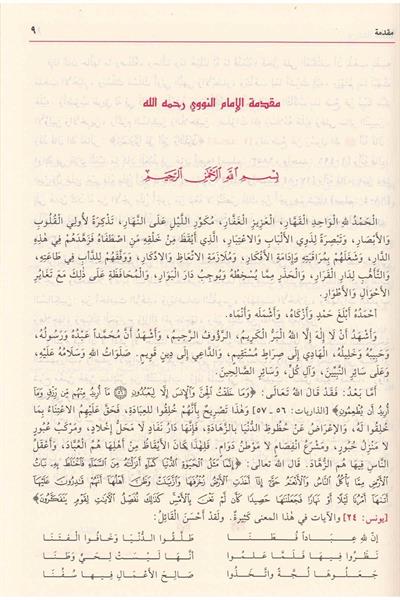 مقدمة ٩
مقدمة الإمام النووي رحمه الله
بِسْمِ اللهِ الرَّحْمٰنِ الرَّحِيمِ
الْحَمْدُ للهِ الْوَاحِدِ الْقَهَّارِ، الْعَزِيزِ الْغَفَّارِ، مُكَوِّرِ اللَّيْلِ عَلَى النَّهَارِ، تَذْكِرَةً لأُولِي الْقُلُوبِ
وَالأَبْصَارِ، وَتَبْصِرَةً لِذَوِي الأَلْبَابِ وَالاعْتِبَارِ، الَّذِي أَيْقَظَ مِنْ خَلْقِهِ مَنِ اصْطَفَاهُ فَزَهَّدَهُمْ فِي هٰذِهِ
الدَّارِ، وَشَغَلَهُمْ بِمُرَاقَبَتِهِ وَإِدَامَةِ الأَفْكَارِ، وَمُلَازَمَةِ الاتِّعَاظِ وَالادِّكَارِ، وَوَفَّقَهُمْ لِلدَّأْبِ فِي طَاعَتِهِ،
وَالتَّأَهُّبِ لِدَارِ الْقَرَارِ، وَالْحَذَرِ مِمَّا يُسْخِطُهُ وَيُوجِبُ دَارَ الْبَوَارِ، وَالْمُحَافَظَةِ عَلَى ذٰلِكَ مَعَ تَغَايُرِ
الأَحْوَالِ وَالأَطْوَارِ.
أَحْمَدُهُ أَبْلَغَ حَمْدٍ وَأَزْكَاهُ، وَأَشْمَلَهُ وَأَنْمَاهُ.
وَأَشْهَدُ أَنْ لَا إِلٰهَ إِلَّا اللهُ الْبَرُّ الْكَرِيمُ، الرَّؤُوفُ الرَّحِيمُ، وَأَشْهَدُ أَنَّ مُحَمَّداً عَبْدُهُ وَرَسُولُهُ،
وَحَبِيبُهُ وَخَلِيلُهُ، الْهَادِي إِلَى صِرَاطٍ مُسْتَقِيمٍ، وَالدَّاعِي إِلَى دِينٍ قَوِيمٍ. صَلَوَاتُ اللهِ وَسَلَامُهُ عَلَيْهِ،
وَعَلَى سَائِرِ النَّبِيِّينَ، وَآلِ كُلٍّ، وَسَائِرِ الصَّالِحِينَ.
أَمَّا بَعْدُ: فَقَدْ قَالَ اللهُ تَعَالَى: ﴿وَمَا خَلَقْتُ الْجِنَّ وَالْإِنسَ إِلَّا لِيَعْبُدُونِ ﴿٥٦﴾ مَا أُرِيدُ مِنْهُم مِّن رِّزْقٍ وَمَا
أُرِيدُ أَن يُطْعِمُونِ﴾ [الذاريات: ٥٦ ـ ٥٧] وَهٰذَا تَصْرِيحٌ بِأَنَّهُمْ خُلِقُوا لِلْعِبَادَةِ، فَحَقَّ عَلَيْهِمُ الاعْتِنَاءُ بِمَا
خُلِقُوا لَهُ، وَالإِعْرَاضُ عَنْ حُظُوظِ الدُّنْيَا بِالزَّهَادَةِ، فَإِنَّهَا دَارُ نَفَادٍ لَا مَحَلُّ إِخْلَادٍ، وَمَرْكَبُ عُبُورٍ
لَا مَنْزِلُ حُبُورٍ، وَمَشْرَعُ انْفِصَامٍ لَا مَوْطِنُ دَوَامٍ. فَلِهٰذَا كَانَ الأَيْقَاظُ مِنْ أَهْلِهَا هُمُ الْعُبَّادَ، وَأَعْقَلُ
النَّاسِ فِيهَا هُمُ الزُّهَّادَ. قَالَ اللهُ تَعَالَى: ﴿إِنَّمَا مَثَلُ الْحَيَوٰةِ الدُّنْيَا كَمَاءٍ أَنزَلْنَٰهُ مِنَ السَّمَاءِ فَاخْتَلَطَ بِهِ نَبَاتُ
الْأَرْضِ مِمَّا يَأْكُلُ النَّاسُ وَالْأَنْعَٰمُ حَتَّىٰ إِذَا أَخَذَتِ الْأَرْضُ زُخْرُفَهَا وَازَّيَّنَتْ وَظَنَّ أَهْلُهَا أَنَّهُمْ قَٰدِرُونَ عَلَيْهَا
أَتَىٰهَا أَمْرُنَا لَيْلًا أَوْ نَهَارًا فَجَعَلْنَٰهَا حَصِيدًا كَأَن لَّمْ تَغْنَ بِالْأَمْسِ كَذَٰلِكَ نُفَصِّلُ الْآيَٰتِ لِقَوْمٍ يَتَفَكَّرُونَ﴾
[يونس: ٢٤] وَالآيات فِي هٰذا المعنى كَثِيرَةٌ. وَلَقَدْ أَحْسَنَ الْقَائِلُ:
إِنَّ لِلهِ عِبَاداً فُطَنَا طَلَّقُوا الدُّنْيَا وَخَافُوا الْفِتَنَا
نَظَرُوا فِيهَا فَلَمَّا عَلِمُوا أَنَّهَا لَيْسَتْ لِحَيٍّ وَطَنَا
جَعَلُوهَا لُجَّةً وَاتَّخَذُوا صَالِحَ الأَعْمَالِ فِيها سُفُنَا